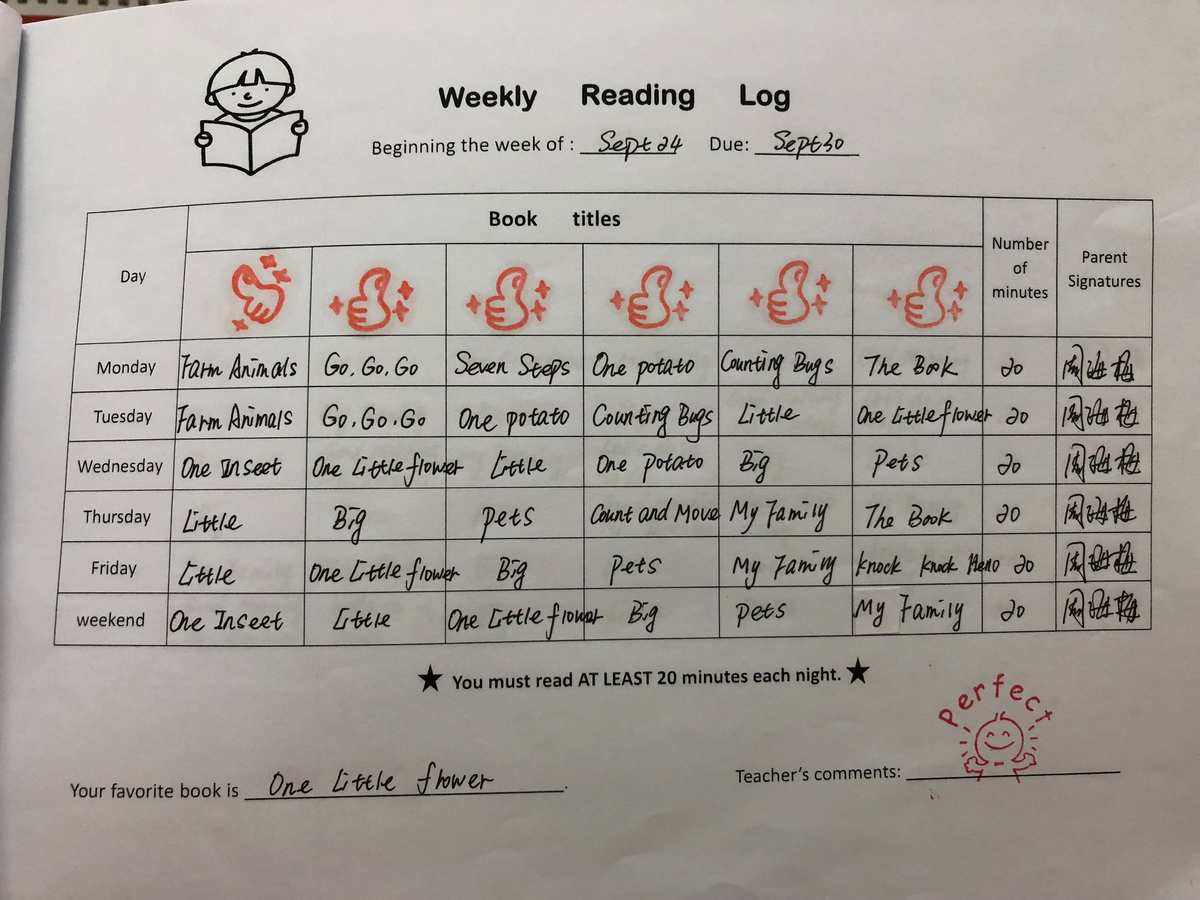 Weekly Reading Log
Beginning the week of : Sept 24 Due: Sept 30
Book titles
Day
Number of minutes
Parent Signatures
Monday Farm Animals Go. Go. Go Seven Steps One potato Counting Bugs The Book 20
Tuesday Farm Animals Go. Go. Go One potato Counting Bugs Little One Little flower 20
Wednesday One Inseet One Little flower Little One potato Big Pets 20
Thursday Little Big Pets Count and Move My Family The Book 20
Friday Little One Little flower Big Pets My Family knock knock 20
weekend One Inseet Little One Little flower Big Pets My Family 20
★ You must read AT LEAST 20 minutes each night. ★
Perfect
Your favorite book is One Little flower.
Teacher's comments: